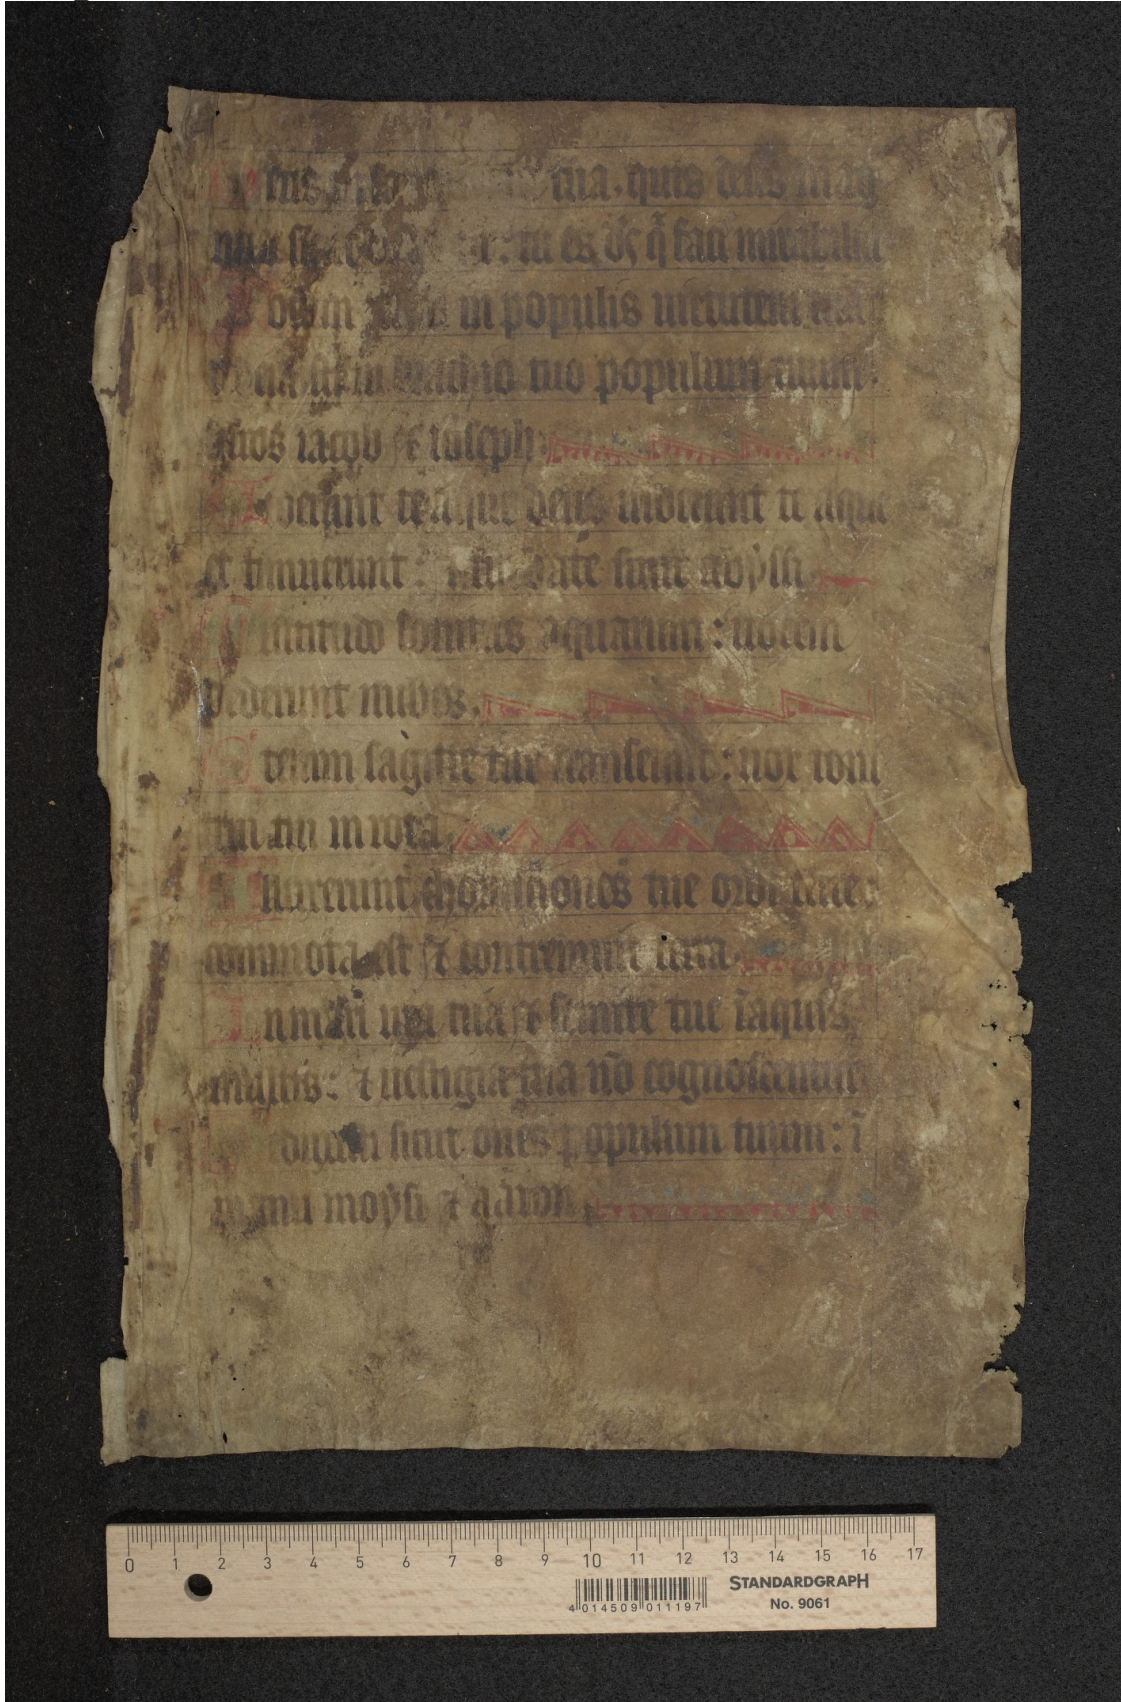 Deus in sancto uia tua. quis deus mag
nus sicut deus noster: tu es ds q̄ facis mirabilia
Notam fecisti in populis uirtutem tuam
redemisti in brachio tuo populum tuum:
filios iacob et ioseph.
Uiderunt te aque deus uiderunt te aque
et timuerunt: sunt abyssi.
Multitudo sonitus aquarum: uocem
dederunt nubes.
Etenim sagitte tue transeunt: uox toni
trui tui in rota.
Illuxerunt choruscationes tue orbi terre:
commota est et contremuit terra.
In mari uia tua et semite tue ī aquis
multis: et uestigia tua nō cognoscentur
Deduxisti sicut oues populum tuum: ī
manu moysi et aaron.
4 014509 011197
STANDARDGRAPH
No. 9061
0 1 2 3 4 5 6 7 8 9 10 11 12 13 14 15 16 17